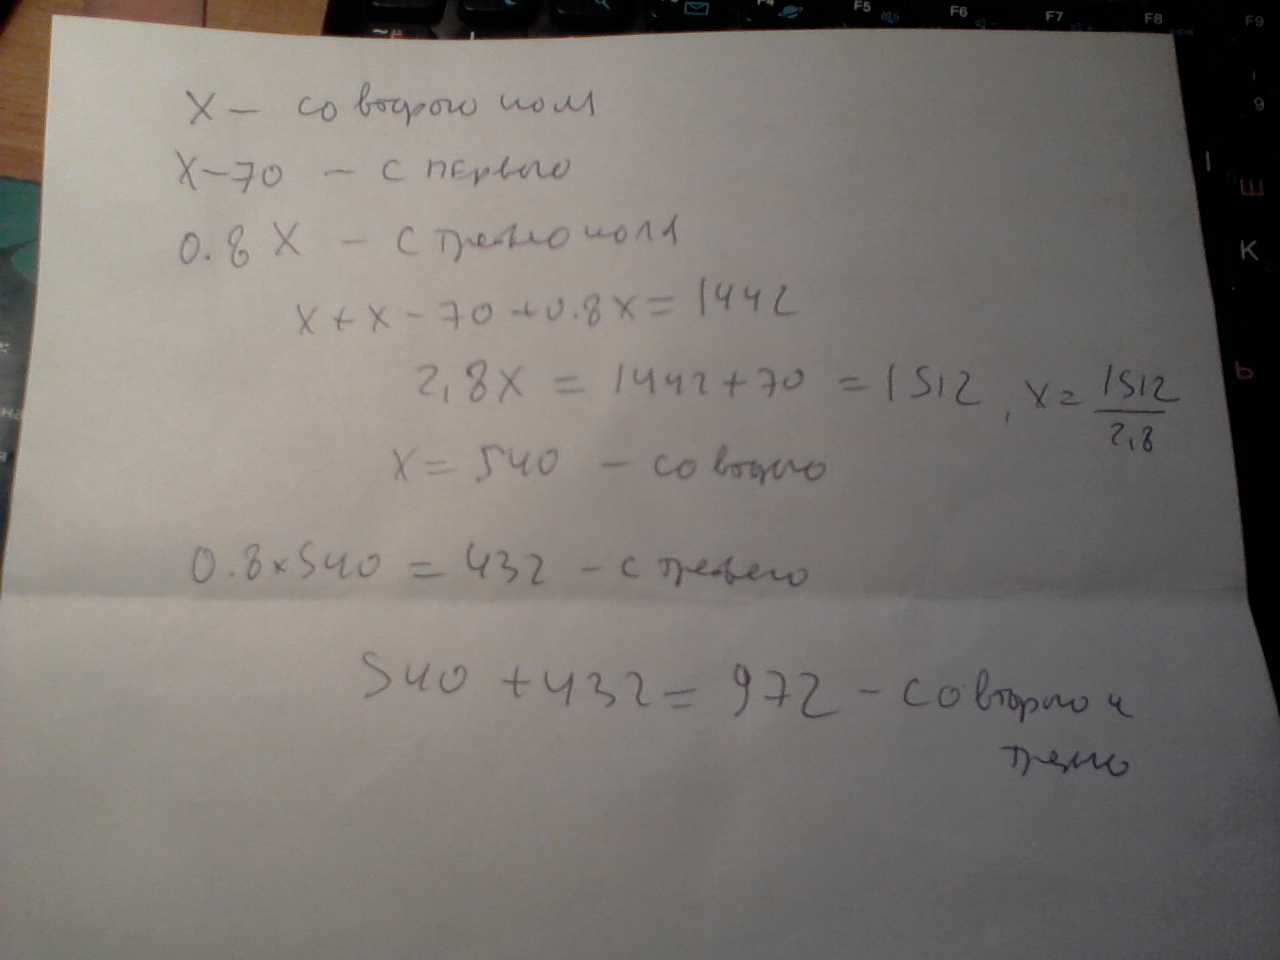 x — со второго поля
x-70 — с первого
0.8 x — с третьего поля
x + x - 70 + 0.8x = 1442
2,8x = 1442 + 70 = 1512, x = 1512/2,8
x = 540 — со второго
0.8 x 540 = 432 — с третьего
540 + 432 = 972 — со второго и
третьего
F4
F5
F6
F7
F8
F9
9
Ш
К
Ь